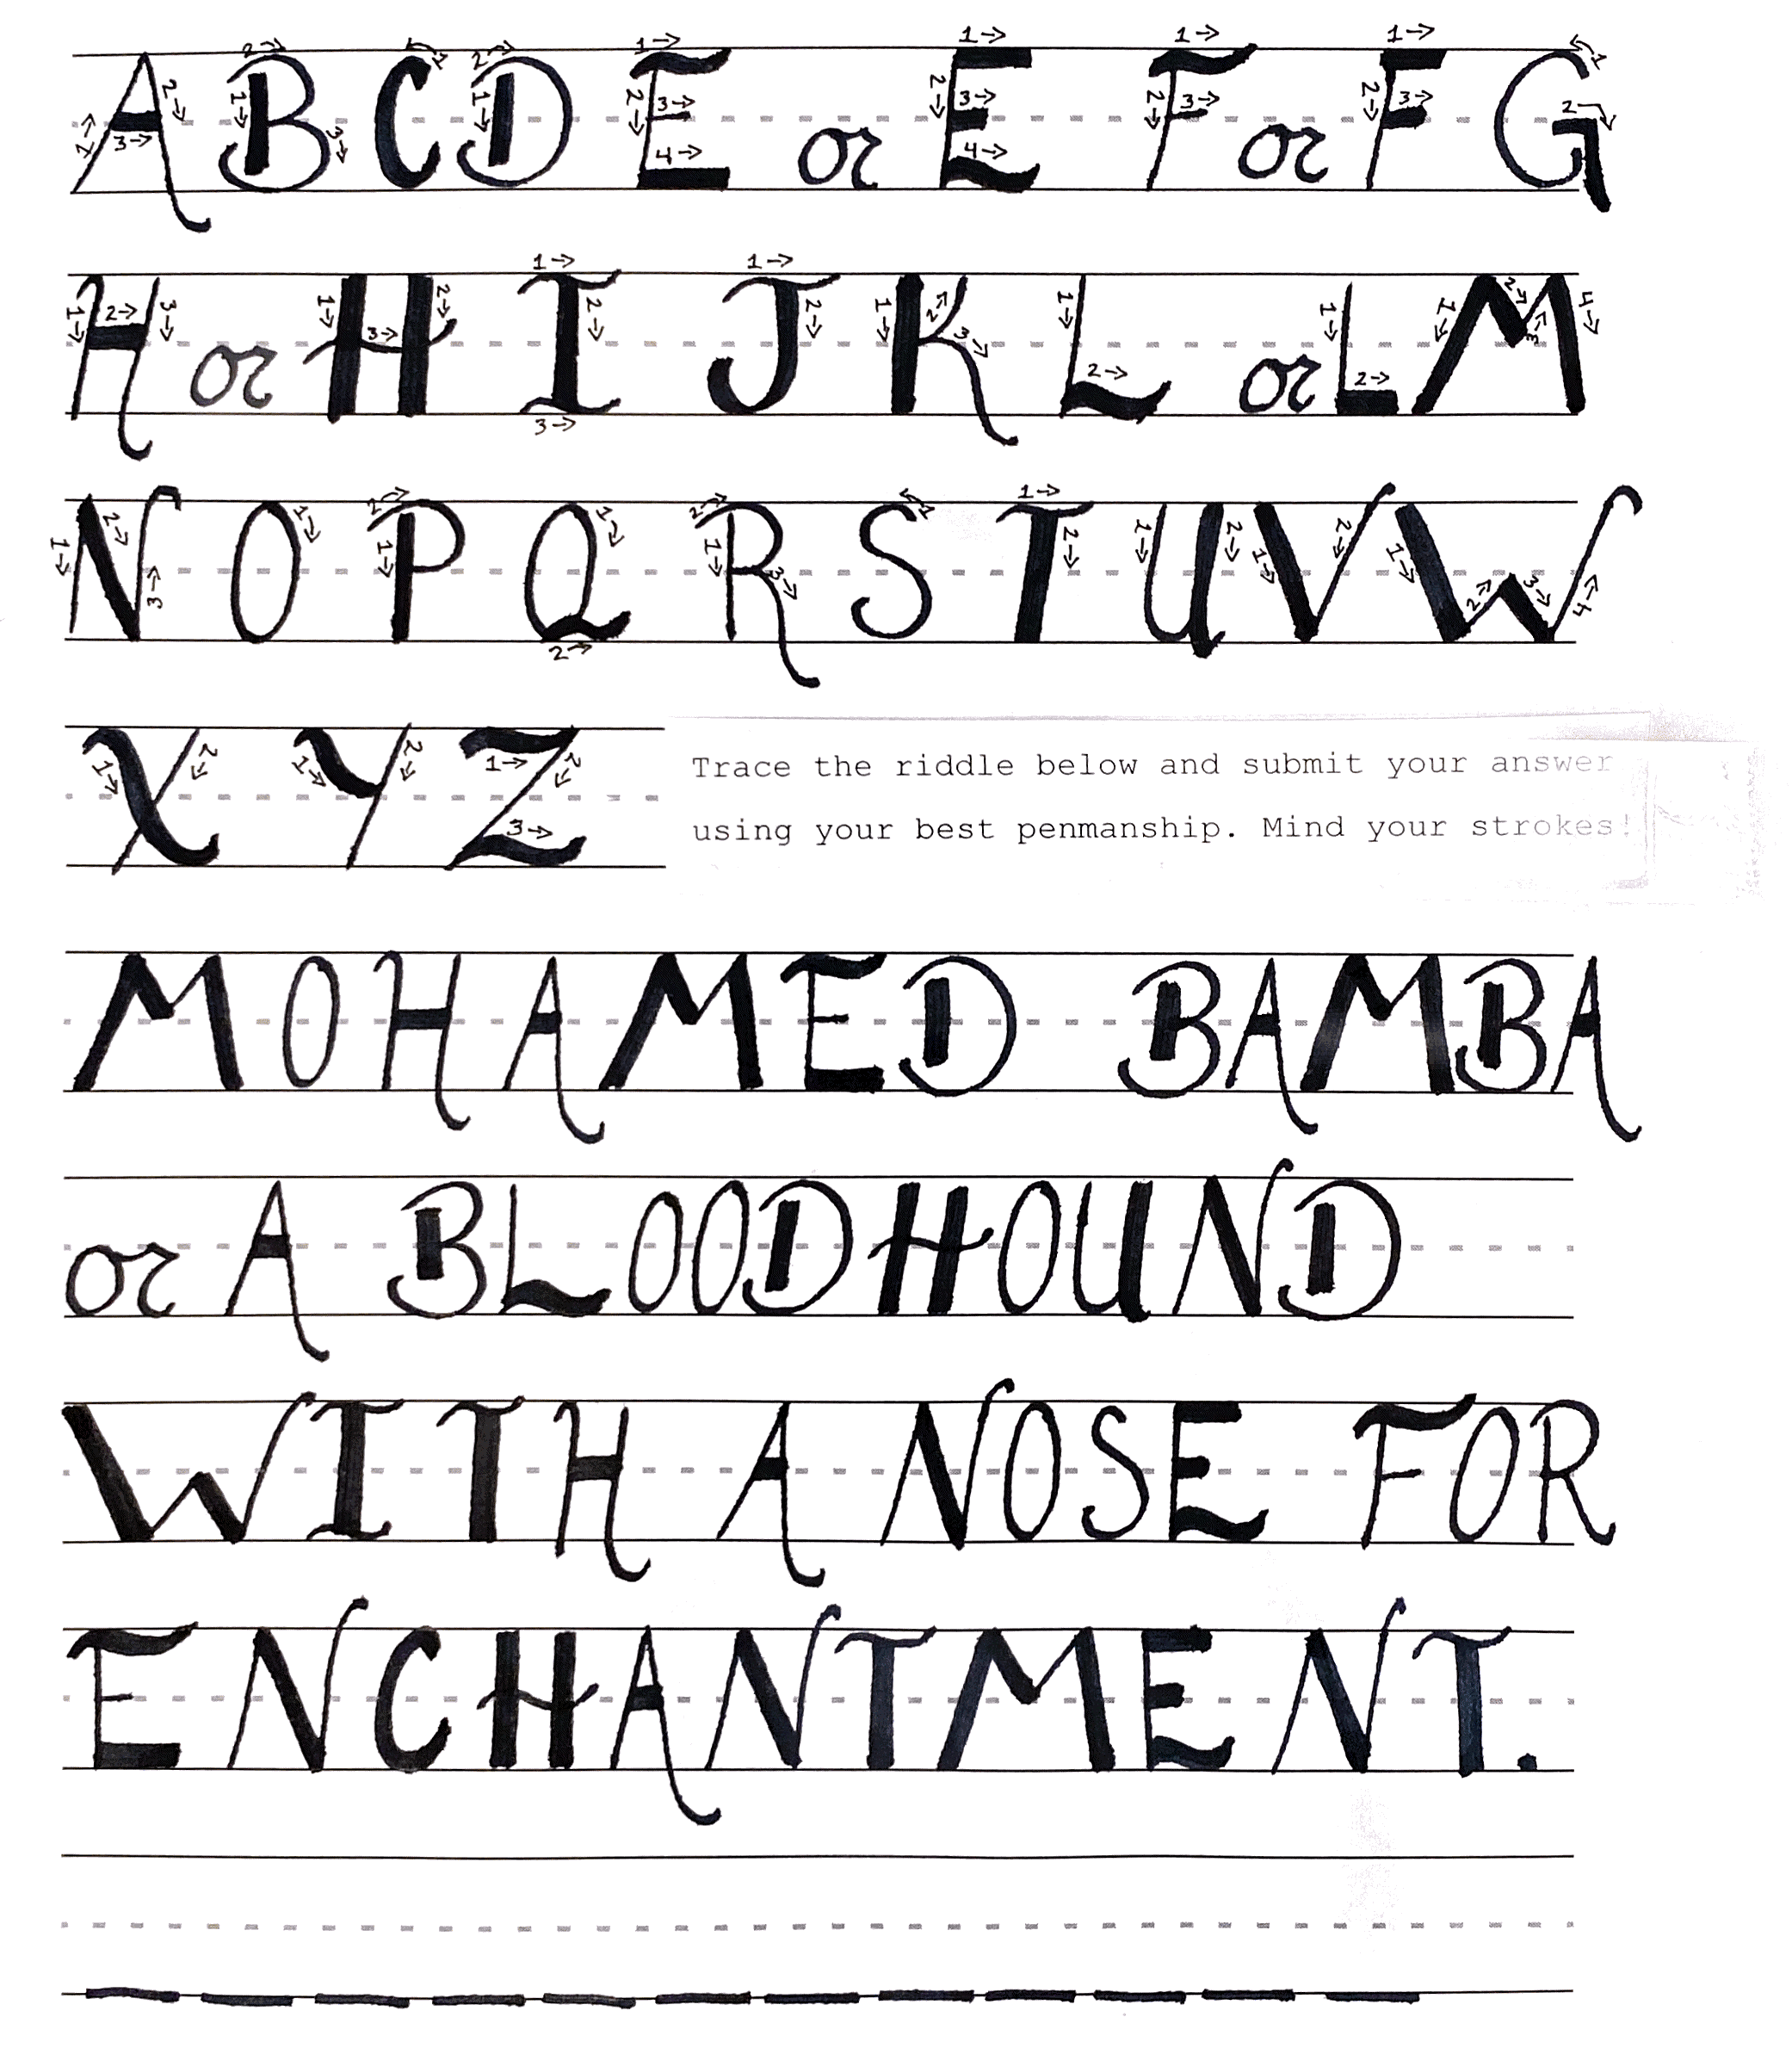 A B C D E or E F or F G
H or H I J K L or L M
N O P Q R S T U V W
X Y Z
Trace the riddle below and submit your answer
using your best penmanship. Mind your strokes!
MOHAMED BAMBA
or A BLOODHOUND
WITH A NOSE FOR
ENCHANTMENT.